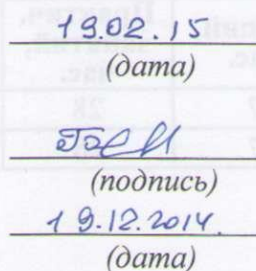 19.02.15
(дата)
(подпись)
19.12.2014.
(дата)